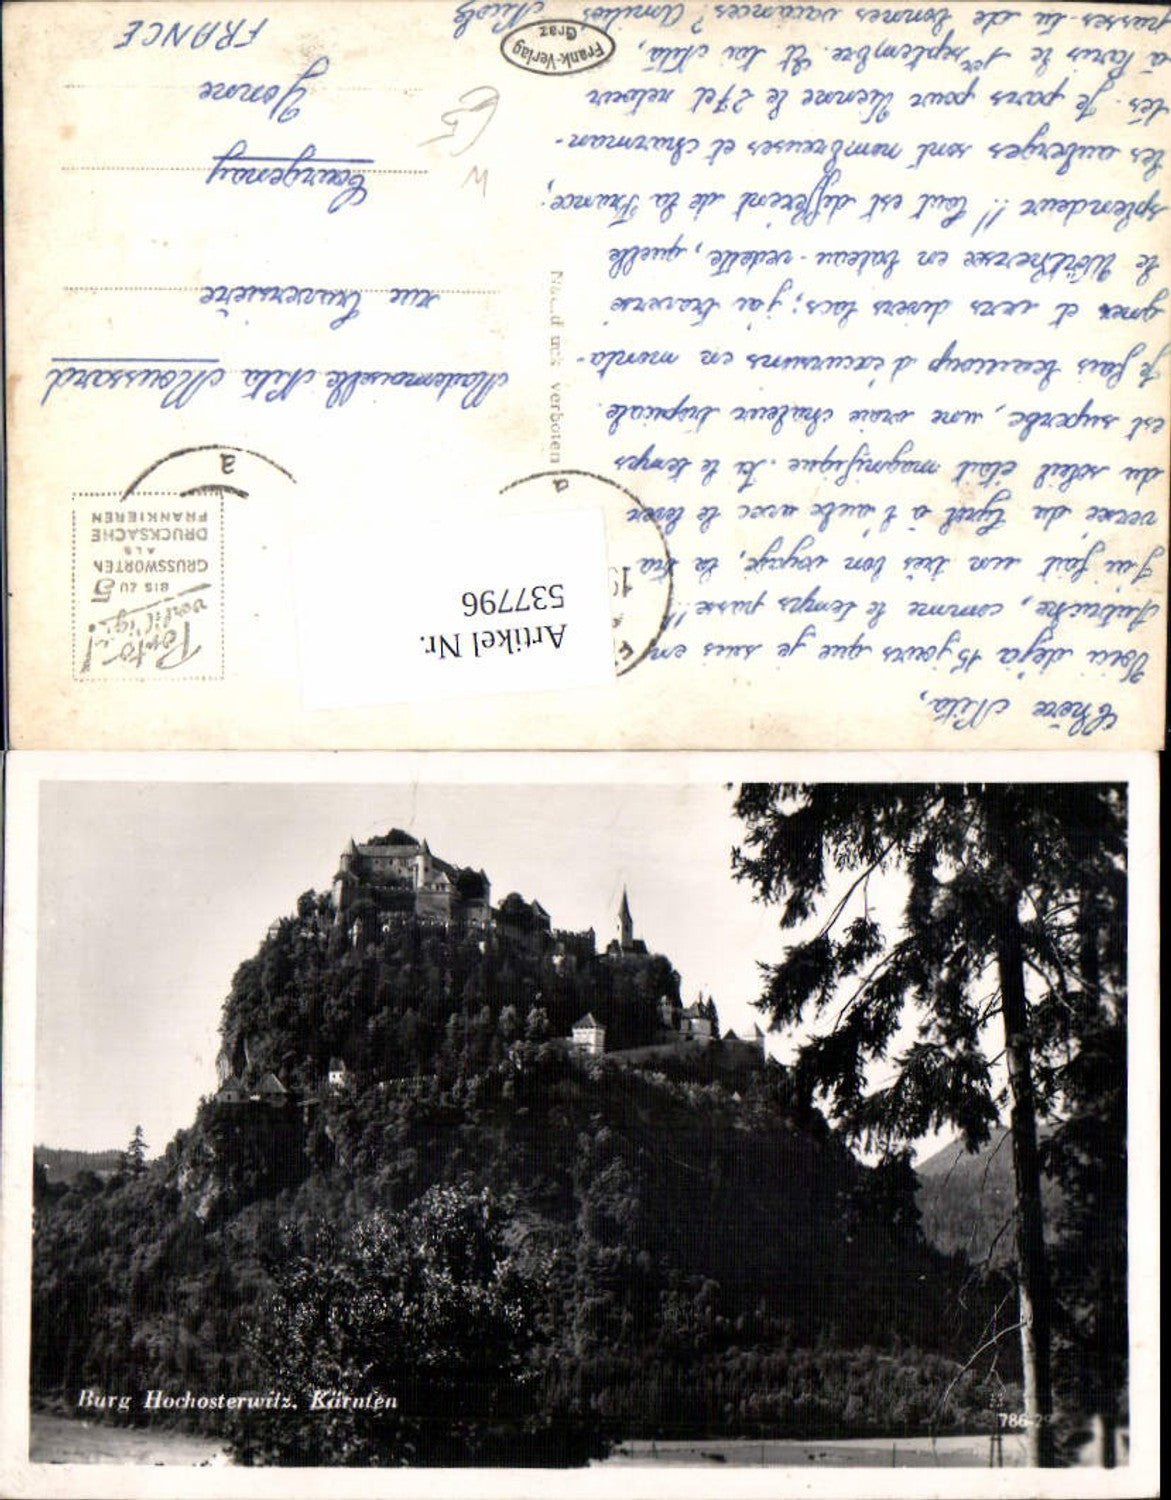 Chère Nita,
Voici déjà 15 jours que je suis en
Autriche, comme le temps passe!!
J'ai fait un très bon voyage, la tra
versée du Tyrol à l'aube avec le lever
du soleil était magnifique. Ici le temps
est superbe, une vraie chaleur tropicale.
Je fais beaucoup d'excursions en monta-
gnes et vers divers lacs; j'ai traversé
le Wörthersee en bateau-vedette, quelle
splendeur!! Tout est différent de la France;
les auberges sont nombreuses et charman-
tes. Je pars pour Vienne le 27 et retour
à Paris le 1er septembre. Et toi Nita,
passes-tu de bonnes vacances? Amitiés. Nicole
Artikel Nr.
537796
Porto
BIS ZU 5
GRUSSWORTEN
ALS
DRUCKSACHE
FRANKIEREN
a
a
19
verboten
Mademoiselle Nita Moussard
rue Traversière
Courgenay
Yonne
FRANCE
Frank-Verlag
Graz
Burg Hochosterwitz. Kärnten
786